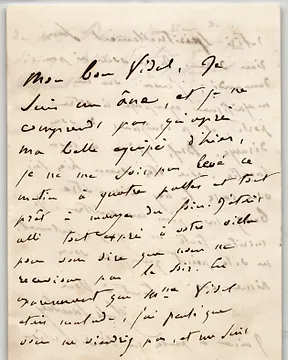 Mon bon Vidal, Je
suis un âne, et je ne
comprends pas qu'après
ma belle équipée d'hier,
je ne me sois pas levé ce
matin à quatre pattes et tout
prêt à manger du foin. J'étais
allé tout exprès à votre villa
pour vous dire que nous ne
recevions pas le soir. Le
que Mme Vidal
était malade, j'ai
vous ne viendriez pas, et me suis